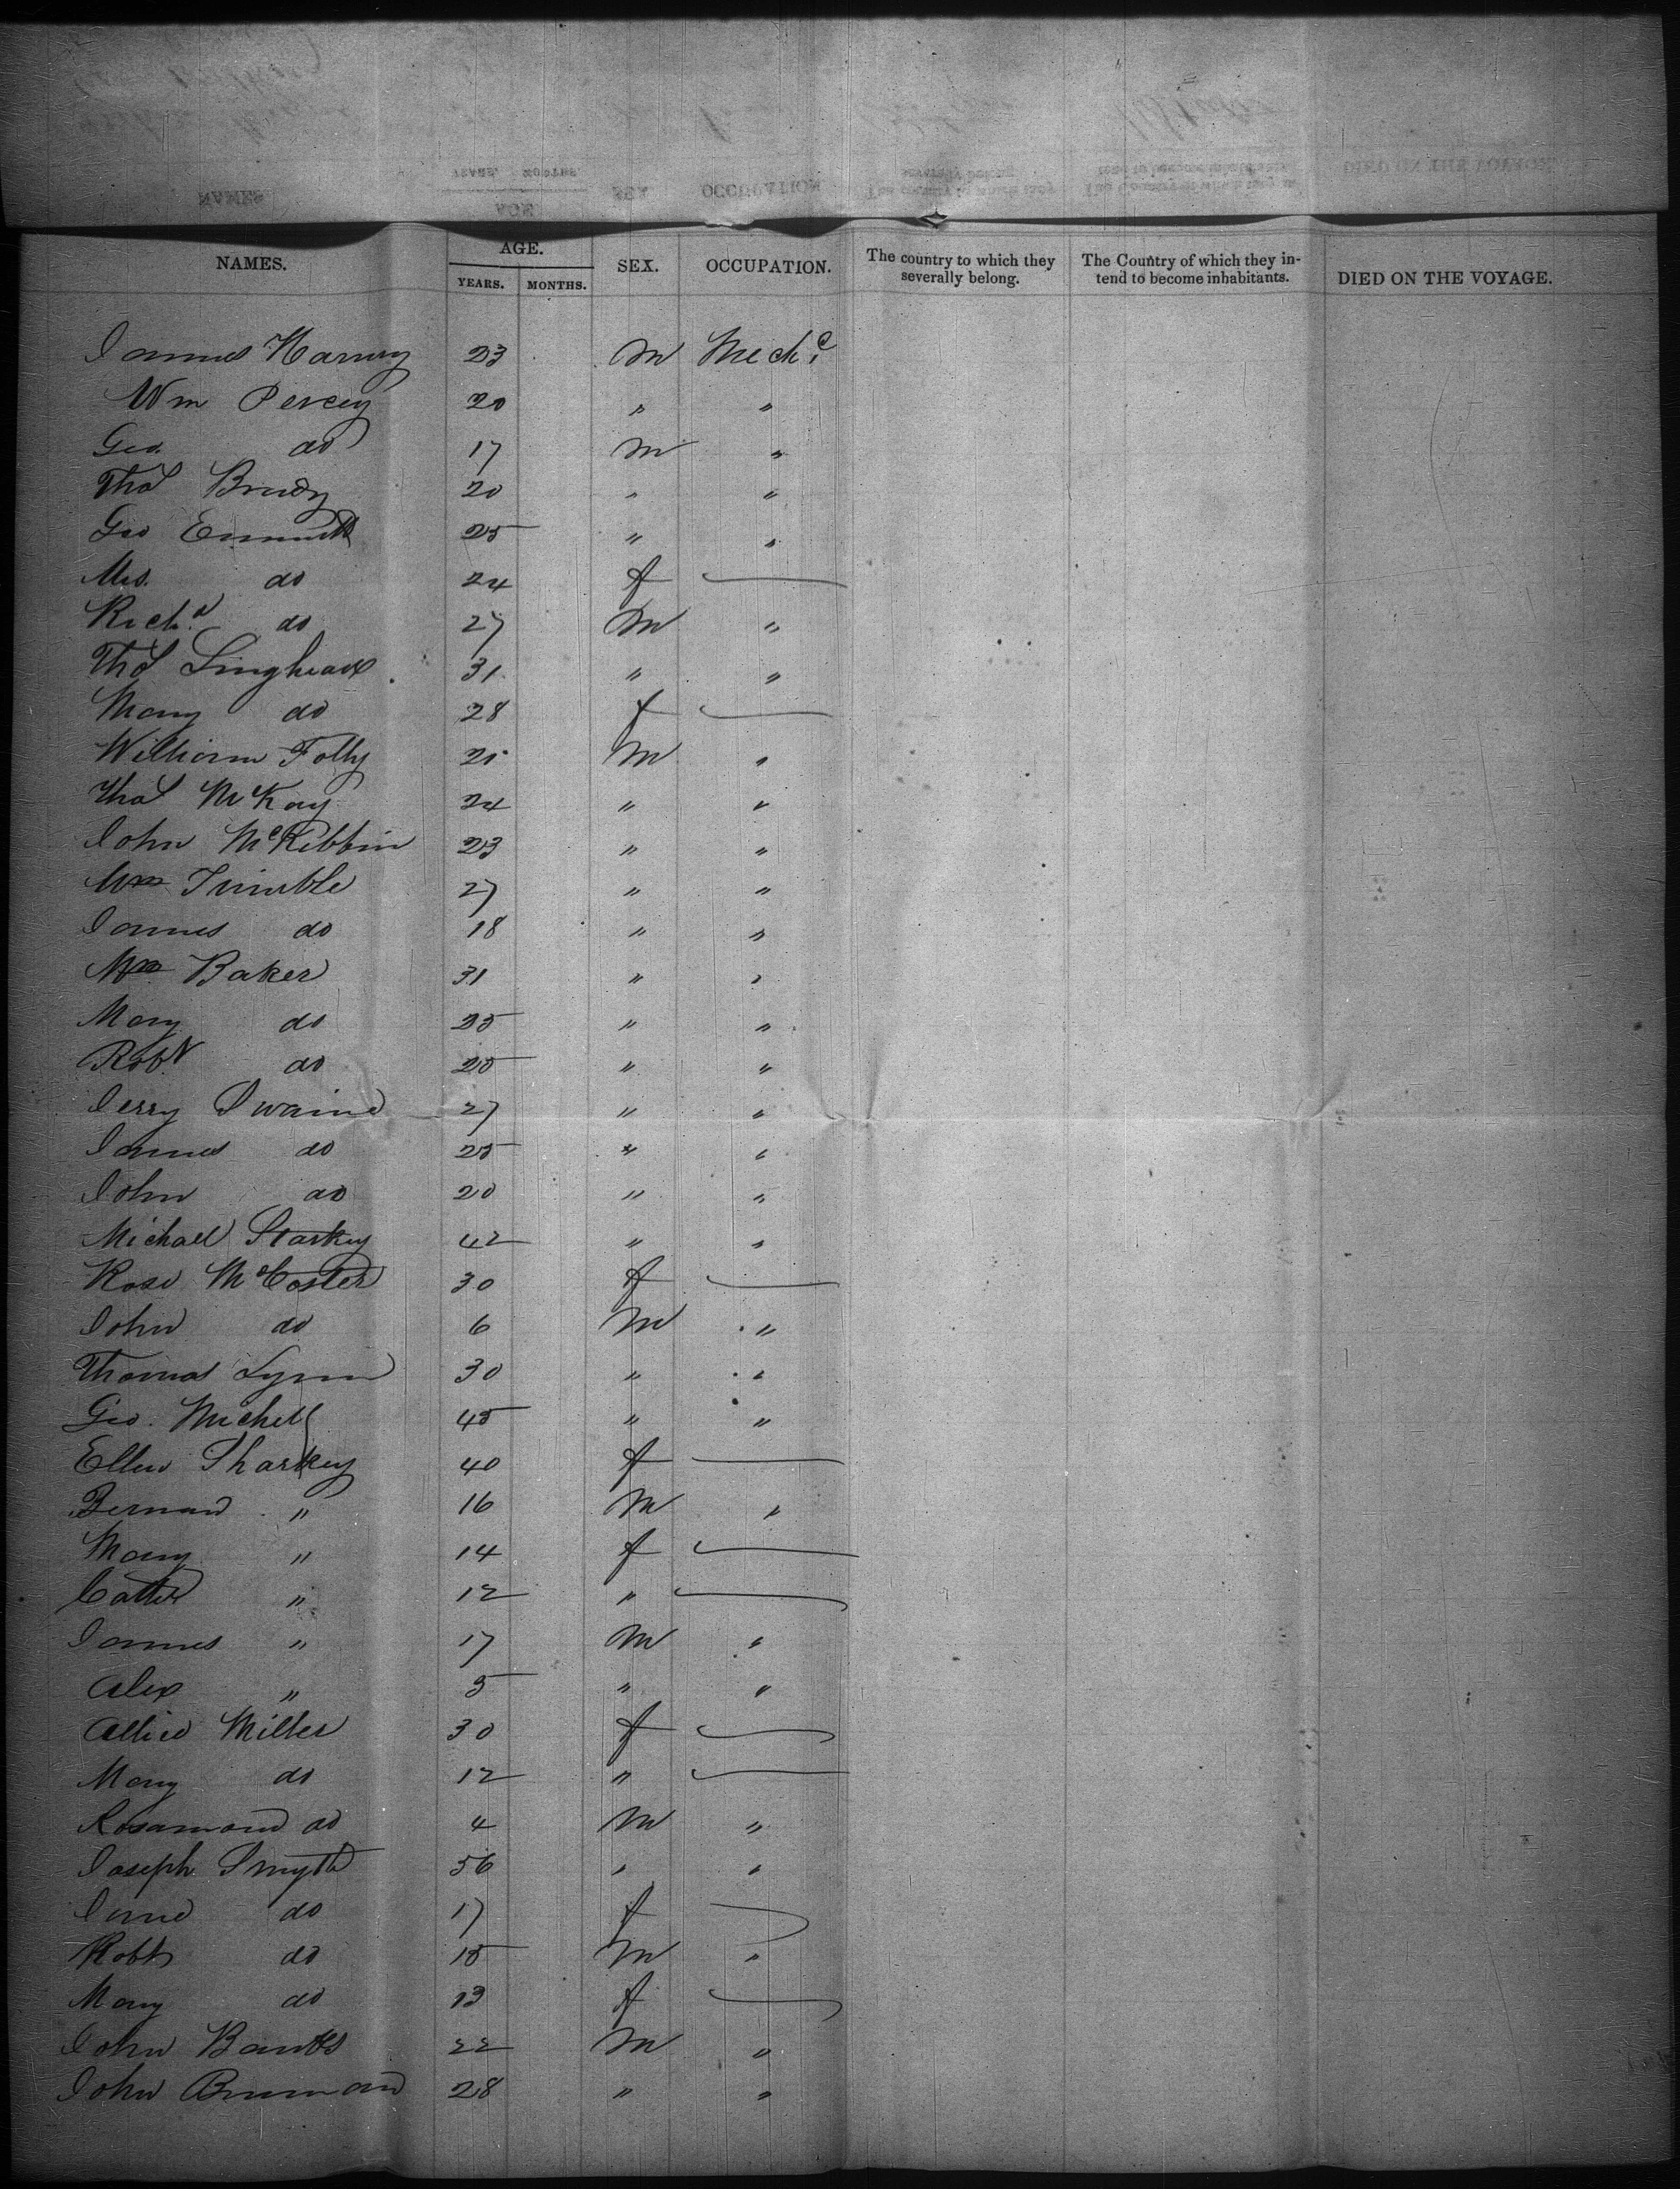 NAMES. AGE. SEX. OCCUPATION. The country to which they severally belong. The Country of which they intend to become inhabitants. DIED ON THE VOYAGE.
YEARS. MONTHS.
James Harvey 23 M Mech.c
Wm Percey 20 " "
Geo. do 17 M "
Thos Brudy 20 " "
Geo Emmett 25 " "
Mrs. do 24 f
Rich.d do 27 M "
Thos Linghead 31 " "
Mary do 28 f
William Folly 21 M "
Thos McKay 24 " "
John McKibbin 23 " "
Wm Trimble 27 " "
James do 18 " "
Wm Baker 31 " "
Mary do 25 " "
Robt do 25 " "
Jerry Swaine 27 " "
James do 25 " "
John do 20 " "
Michael Starkey 42 " "
Rose McCoster 30 f
John do 6 M "
Thomas Lynn 30 " "
Geo. Michell 45 " "
Ellen Sharkey 40 f
Bernard " 16 M "
Mary " 14 f
Cathe " 12 "
James " 17 M "
Alex " 5 " "
Allice Miller 30 f
Mary do 12 "
Rosamond do 4 M "
Joseph Smyth 56 " "
Jane do 17 f
Robt do 15 M "
Mary do 13 f
John Banks 22 M "
John 28 " "